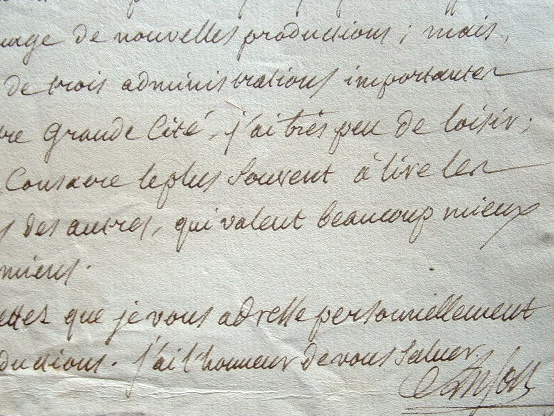 de nouvelles productions ; mais,
de trois administrations importantes
grande Cité, j'ai très peu de loisir ;
Consacre le plus souvent à lire les
des autres, qui valent beaucoup mieux
miens.
que je vous adresse personnellement
j'ai l'honneur de vous saluer,